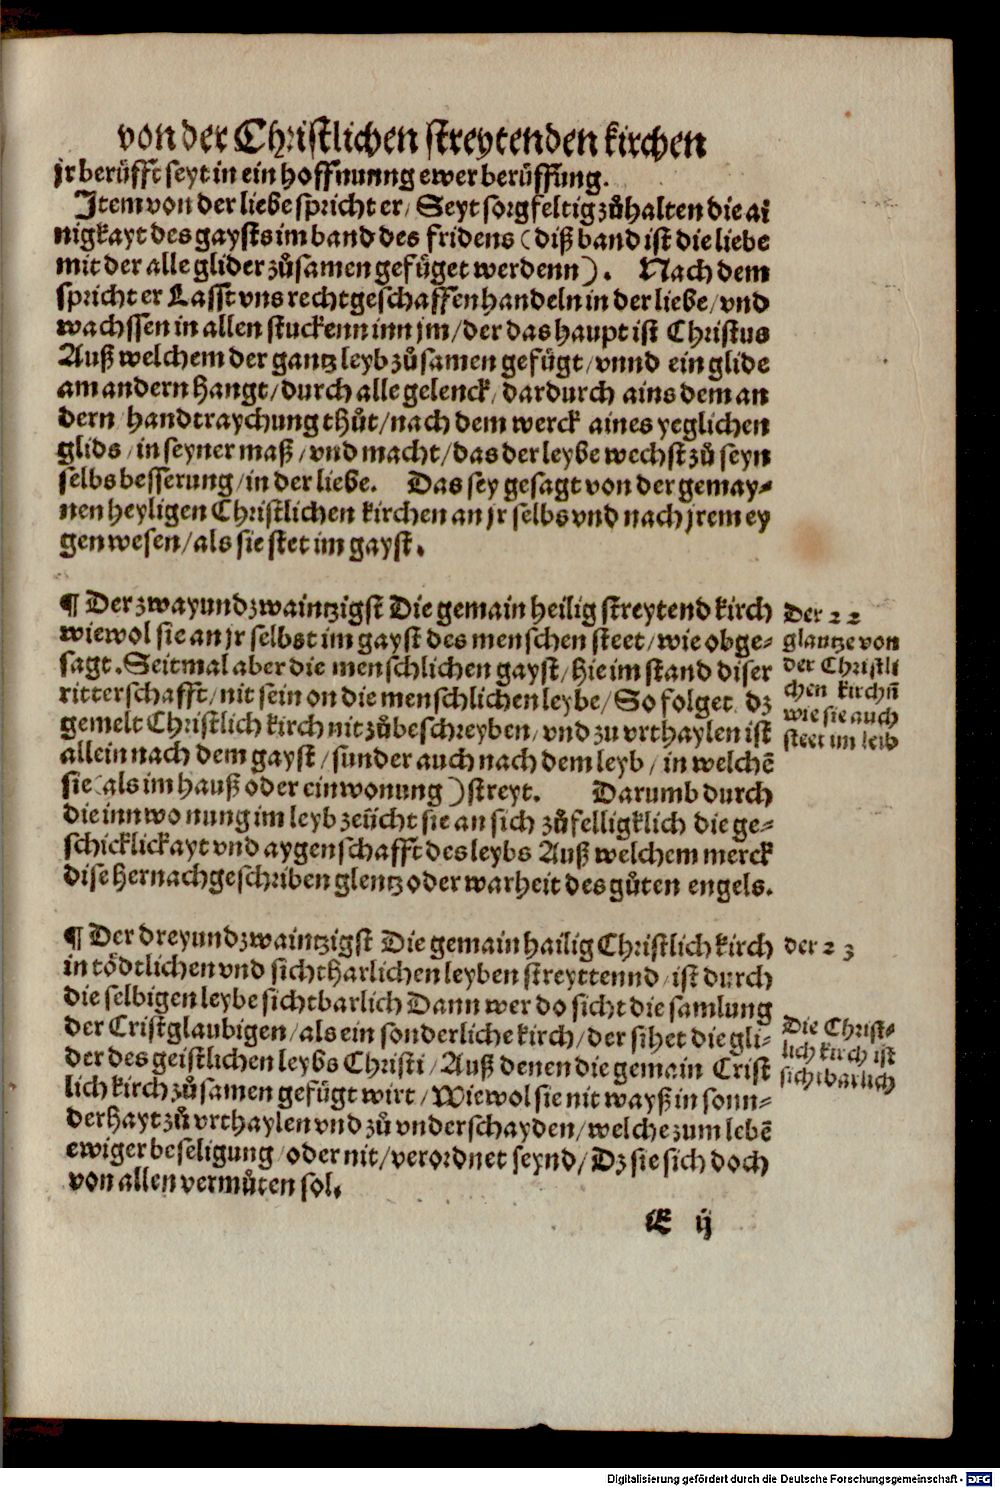 von der Christlichen streytenden kirchen
jr berüfft seyt in ein hoffnunng ewer berüffung.
Item von der liebe spricht er/ Seyt sorgfeltig zůhalten die ai
nigkayt des gaysts im band des fridens (diß band ist die liebe
mit der alle glider zůsamen gefüget werdenn). Nach dem
spricht er Lasst vns rechtgeschaffen handeln in der liebe/ vnd
wachssen in allen stuckenn inn jm/ der das haupt ist Christus
Auß welchem der gantz leyb zůsamen gefügt/ vnnd ein glide
am andern hangt/ durch alle gelenck/ dardurch ains dem an
dern handtraychung thůt/ nach dem werck aines yeglichen
glids/ in seyner maß/ vnd macht/ das der leybe wechst zů seyn
selbs besserung/ in der liebe. Das sey gesagt von der gemay⸗
nen heyligen Christlichen kirchen an jr selbs vnd nach jrem ey
gen wesen/ als sie stet im gayst.
¶ Der zwayundzwaintzigst Die gemain heilig streytend kirch
wiewol sie an jr selbst im gayst des menschen steet/ wie obge⸗
sagt. Seitmal aber die menschlichen gayst/ hie im stand diser
ritterschafft/ nit sein on die menschlichen leybe/ So folget dz
gemelt Christlich kirch nit zůbeschreyben/ vnd zu vrthaylen ist
allein nach dem gayst/ sunder auch nach dem leyb/ in welchē
sie (als im hauß oder einwonung) streyt. Darumb durch
die innwonung im leyb zeücht sie an sich zůfelligklich die ge⸗
schicklickayt vnd aygenschafft des leybs Auß welchem merck
dise hernachgeschriben glentz oder warheit des gůten engels.
Der 22
glantze von
der Christli
chen kirchē
wie sie auch
steet im leib
¶ Der dreyundzwaintzigst Die gemain hailig Christlich kirch
in tödtlichen vnd sichtharlichen leyben streyttennd/ ist durch
die selbigen leybe sichtbarlich Dann wer do sicht die samlung
der Cristglaubigen/ als ein sonderliche kirch/ der sihet die gli⸗
der des geistlichen leybs Christi/ Auß denen die gemain Crist
lich kirch zůsamen gefügt wirt/ Wiewol sie nit wayß in sonn⸗
derhayt zů vrthaylen vnd zů vnderschayden/ welche zum lebē
ewiger beseligung/ oder nit/ verordnet seynd/ Dz sie sich doch
von allen vermůten sol.
der 23
Die Christ⸗
lich kirch ist
sichtbarlich
E ij
Digitalisierung gefördert durch die Deutsche Forschungsgemeinschaft - DFG